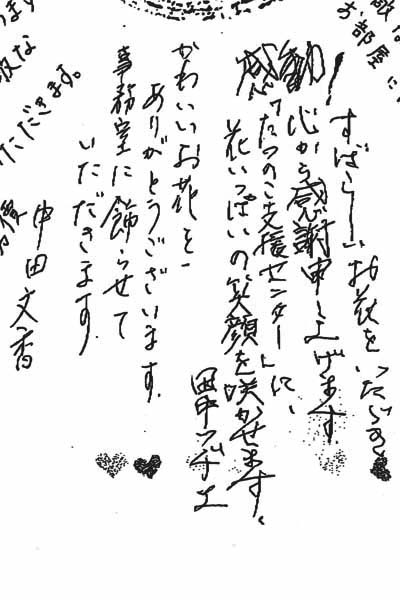 敵な
お部屋に
すばらしいお花をいただき
心から感謝申し上げます。
たつのこ支援センターに、
花いっぱいの笑顔を咲かせます。
田中
かわいいお花を
ありがとうございます。
事務室に飾らせて
いただきます。
中田文香
ただきます。